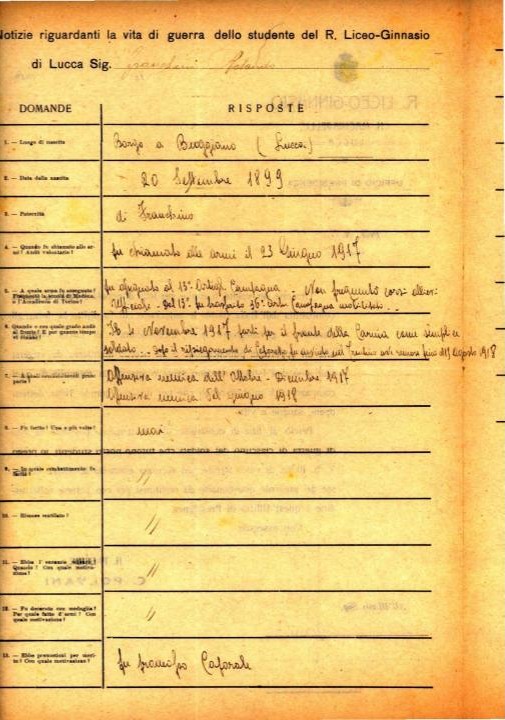 Notizie riguardanti la vita di guerra dello studente del R. Liceo-Ginnasio
di Lucca Sig.
DOMANDE
RISPOSTE
1. — Luogo di nascita
Borgo a Buggiano (Lucca)
2. — Data della nascita
20 Settembre 1899
3. — Paternità
di Franchino
4. — Quando fu chiamato alle armi? Andò volontario?
fu chiamato alle armi il 23 Giugno 1917
5. — A quale arma fu assegnato?
Frequentò la scuola di Modena,
o l'Accademia di Torino?
fu assegnato al 13° Artigl. Campagna. Non frequentò corsi allievi
ufficiale. Dal 13° fu trasferito 36° Art. Campagna
6. — Quando e con quale grado andò
al fronte? E per quanto tempo
vi rimase?
Novembre 1917 partì per il fronte della Carnia come semplice
soldato. Dopo il ripiegamento di Caporetto fu inviato nel Trentino ove rimase fino al 19 agosto 1918
7. — A quali combattimenti prese
parte?
Offensiva nemica dell'Ottobre - Dicembre 1917
Offensiva nemica del giugno 1918
8. — Fu ferito? Una o più volte?
mai
9. — In quale combattimento fu
ferito?
//
10. — Rimase mutilato?
//
11. — Ebbe l'encomio
Quando? Con quale motiva-
zione?
//
12. — Fu decorato con medaglia?
Per quale fatto d'armi? Con
quale motivazione?
//
13. — Ebbe promozioni per meri-
to? Con quale motivazione?
fu promosso Caporale